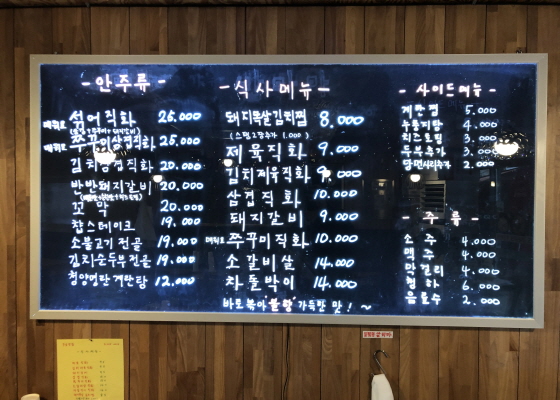 - 안주류 -
매워요 섞어직화 26.000
매워요 쭈꾸미삼겹직화 25.000
김치삼겹직화 20.000
반반돼지갈비 20.000
꼬막 20.000
찹스테이크 19.000
소불고기 전골 19.000
김치순두부전골 19.000
청양명란 계란탕 12.000
- 식사메뉴 -
돼지목살김치찜 8.000
(스팸2장추가 1.000)
제육직화 9.000
김치제육직화 9.000
삼겹직화 10.000
돼지갈비 9.000
매워요 쭈꾸미직화 10.000
소갈비살 14.000
차돌박이 14.000
바로볶아 불향 가득한 맛! ~
- 사이드메뉴 -
계란찜 5.000
누룽지탕 4.000
치즈토핑 3.000
두부추가 3.000
당면사리추가 2.000
- 주류 -
소주 4.000
맥주 4.000
막걸리 4.000
청하 6.000
음료수 2.000